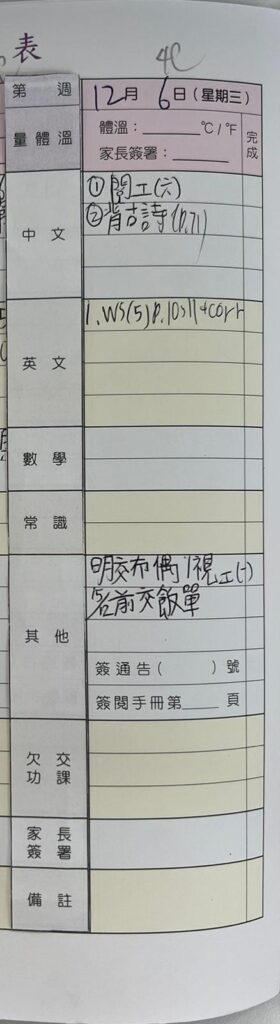 表
4C
第 週
12月 6日(星期三)
量體溫
體溫：______ °C / °F
家長簽署：______
完成
中文
① 閱工(六)
② 背古詩(P.71)
英文
1. WS(5) P.10,11+corr
數學
常識
其他
明交布偶、視工(一)
名前交飯單
簽通告( )號
簽閱手冊第____頁
欠交功課
家長簽署
備註